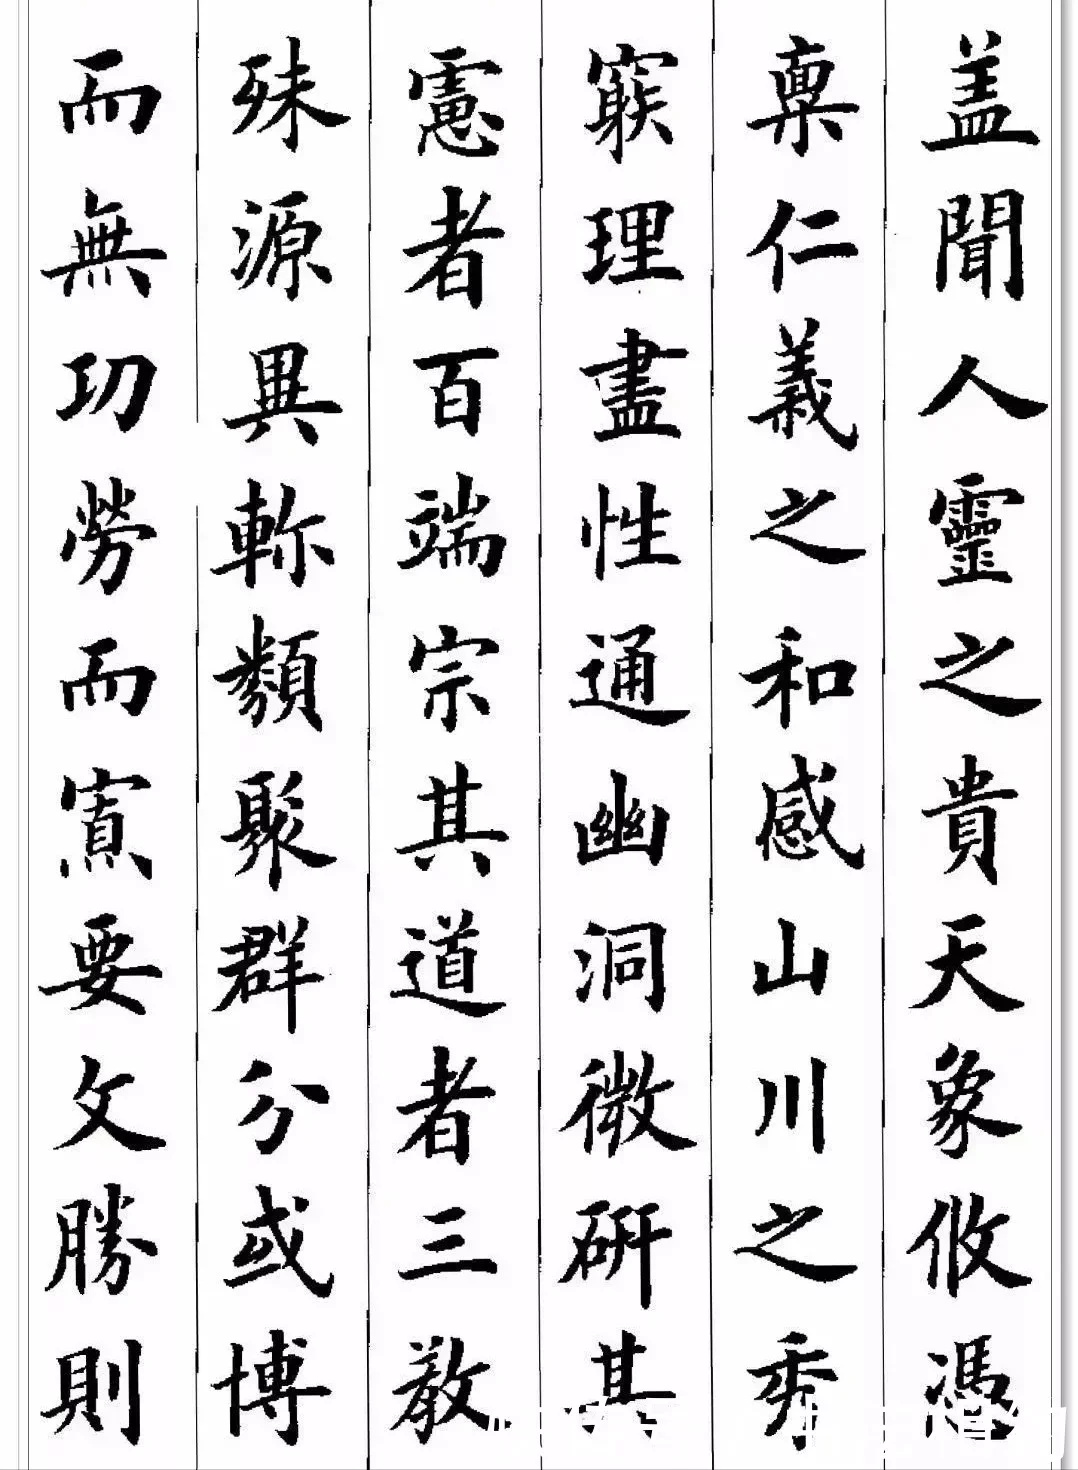 盖聞人靈之貴天象攸憑
禀仁義之和感山川之秀
窮理盡性通幽洞微研其
慮者百端宗其道者三教
殊源異軫類聚群分或博
而無功勞而寡要文勝則